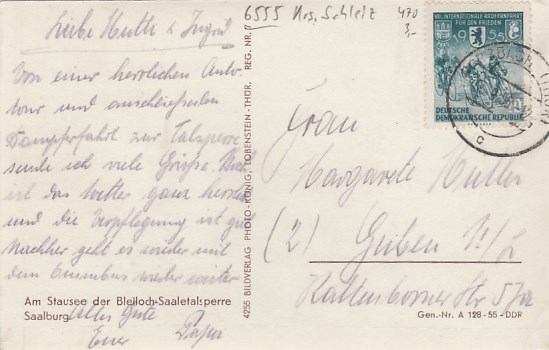 6555 Krs. Schleiz 470
5,-
Liebe Mutti & Ingrid
Von einer herrlichen Auto-
tour und anschließenden
Dampferfahrt zur Talsperre
sende ich viele Grüße. Noch
ist das Wetter ganz herrlich
und die Verpflegung ist gut
Nachher geht es wieder mit
dem Omnibus weiter
Alles Gute
Euer Papa
Am Stausee der Bleiloch-Saaletalsperre
Saalburg
4255 BILDVERLAG PHOTO-KÖNIG, LOBENSTEIN-THÜR. REG. NR.
VIII. INTERNATIONALE RADFERNFAHRT
FÜR DEN FRIEDEN
1955
DEUTSCHE
DEMOKRATISCHE REPUBLIK
Frau
Margarete Müller
(2) Guben N/L
Kaltenborner Str 51a
Gen.-Nr. A 128-55-DDR